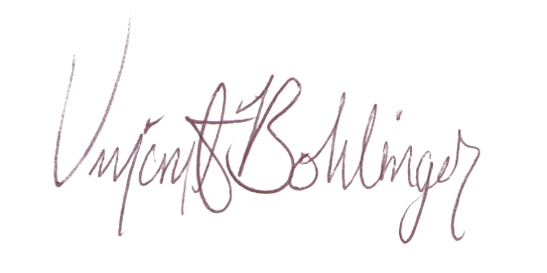 Vincent Bohlinger